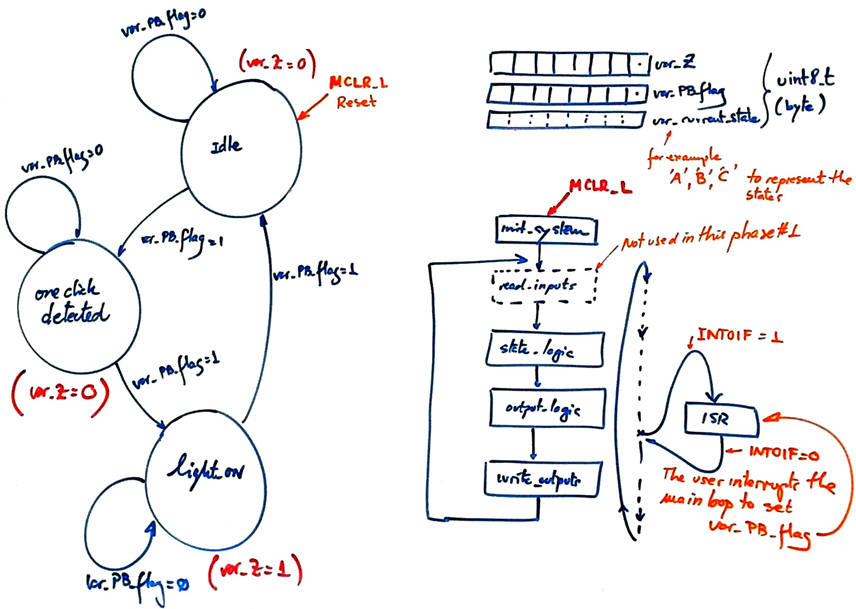 var_PB_flag=0
(var_Z=0)
MCLR_L
Reset
Idle
var_PB_flag=0
var_PB_flag=1
var_PB_flag=1
one click
detected
(var_Z=0)
var_PB_flag=1
light_on
var_PB_flag=0
(var_Z=1)
var_Z
var_PB_flag
var_current_state
uint8_t
(byte)
for example
'A', 'B', 'C' to represent the
states
MCLR_L
init_system
Not used in this phase #1
read_inputs
state_logic
output_logic
write_outputs
INT0IF = 1
ISR
INT0IF=0
The user interrupts the
main loop to set
var_PB_flag